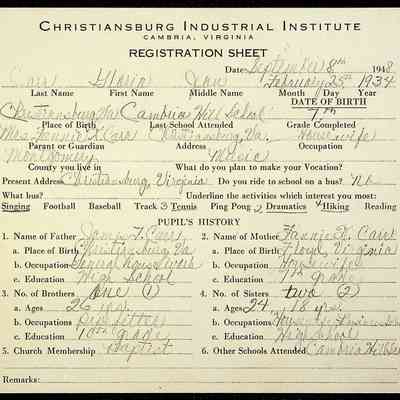 CHRISTIANSBURG INDUSTRIAL INSTITUTE
CAMBRIA, VIRGINIA
REGISTRATION SHEET
Date September 8th 1948
Carr Gloria Jean February 25th 1934
Last Name First Name Middle Name Month Day Year
DATE OF BIRTH
Christiansburg Va Cambria Hill School 7th
Place of Birth Last School Attended Grade Completed
Mrs. Fannie K Carr Christiansburg, Va. Housewife
Parent or Guardian Address Occupation
Montgomery Music
County you live in What do you plan to make your Vocation?
Present Address Christiansburg, Virginia Do you ride to school on a bus? No
What bus? Underline the activities which interest you most:
Singing Football Baseball Track 3 Tennis Ping Pong 2 Dramatics 4 Hiking Reading
PUPIL'S HISTORY
1. Name of Father James F. Carr 2. Name of Mother Fannie K. Carr
a. Place of Birth Christiansburg Va a. Place of Birth Floyd, Virginia
b. Occupation General House Work b. Occupation Housewife
c. Education High School c. Education 7th grade
3. No. of Brothers One (1) 4. No. of Sisters two (2)
a. Ages 26 yrs. a. Ages 24 18 yrs.
b. Occupations b. Occupations Housewife
c. Education 10th grade c. Education High School
5. Church Membership Baptist 6. Other Schools Attended Cambria Hill
Remarks: